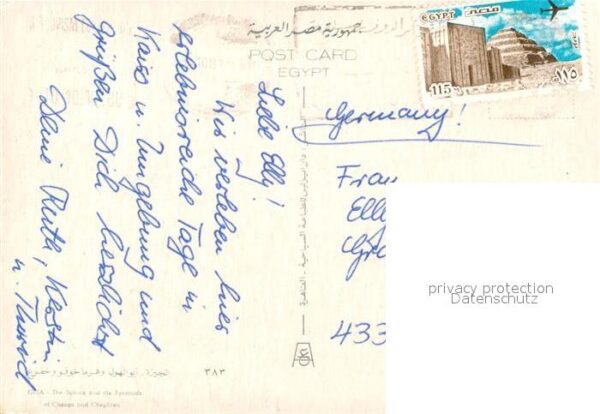 جمهورية مصر العربية
POST CARD
EGYPT
EGYPT مصر
115 ١١٥
Germany!
Liebe Elly!
Wir verleben hier
erlebnisreiche Tage in
Kairo u. Umgebung und
grüßen Dich herzlichst
Deine Ruth, Kerstin
u.
Frau
Elly
433
privacy protection
Datenschutz
الجيزة - أبو الهول وهرما خوفو وخفرع
٣٨٣
GIZA - The Sphinx and the Pyramids
of Cheops and Chephren